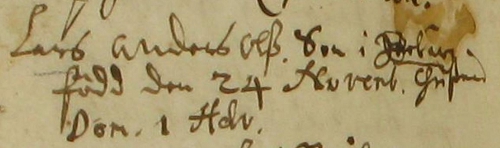 Lars Anders Olß. Son i
född den 24 Novemb.
Dom. 1 Adv.